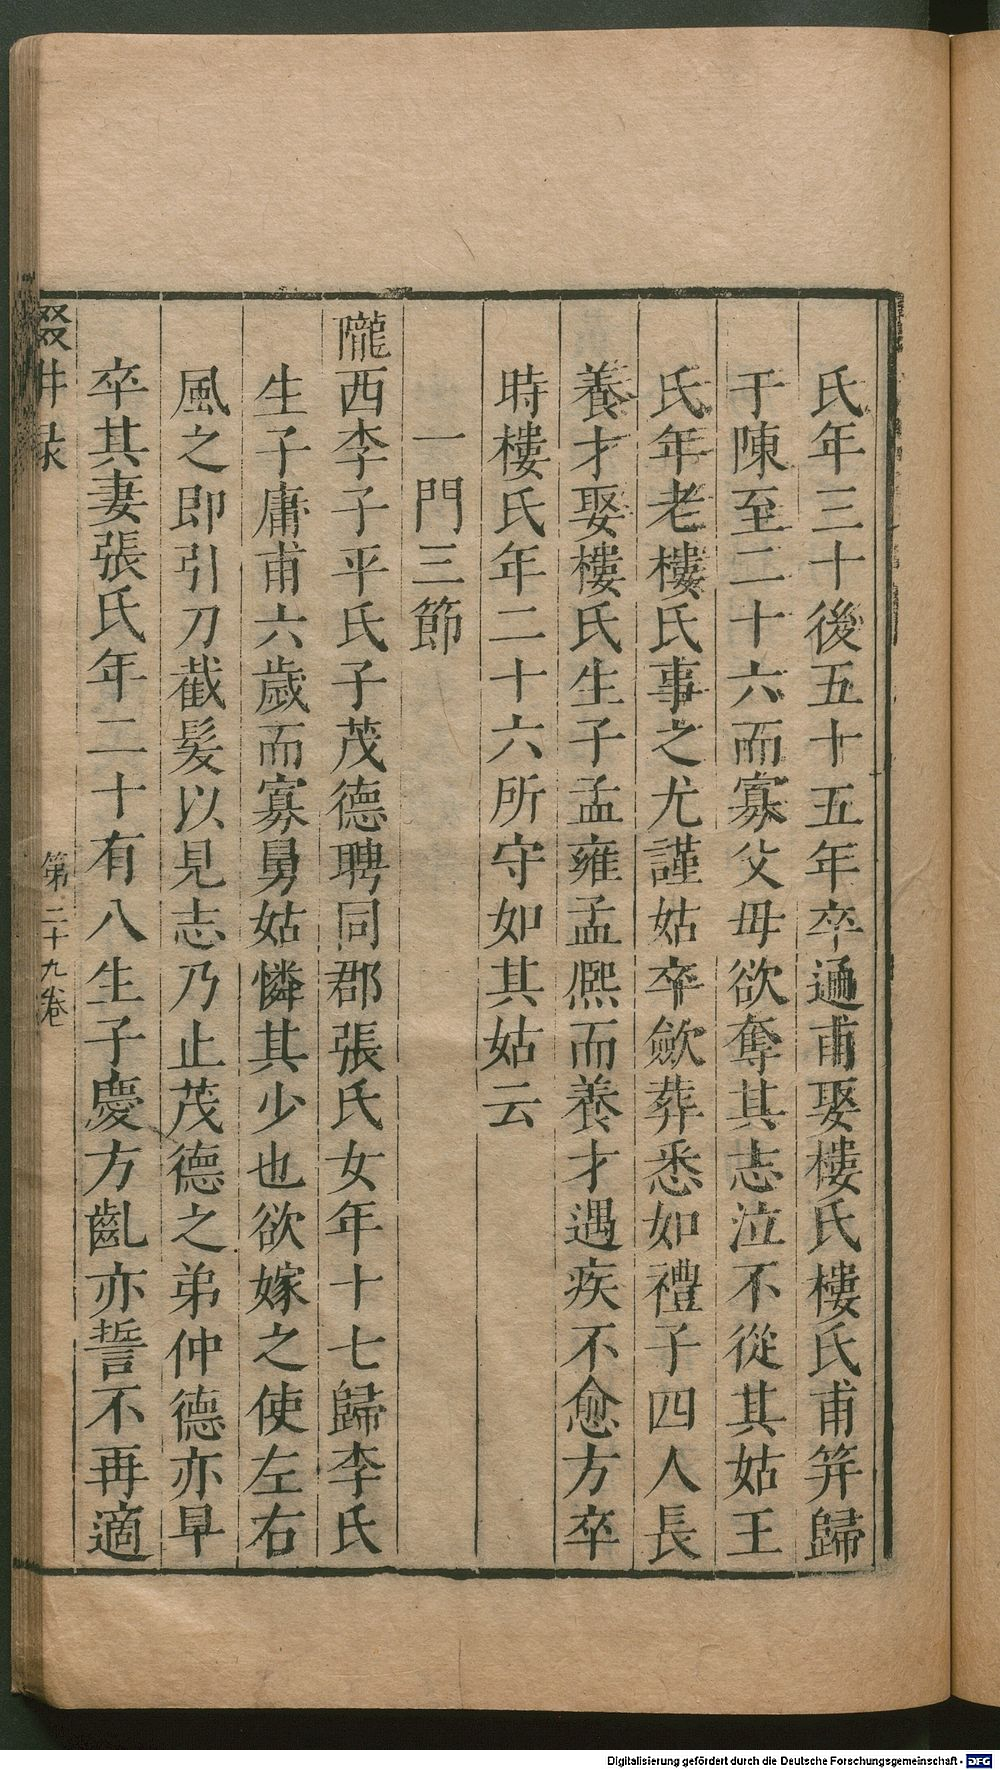 氏年三十後五十五年卒通甫娶樓氏樓氏甫笄歸
于陳至二十六而寡父毋欲奪其志泣不從其姑王
氏年老樓氏事之尤謹姑卒歛葬悉如禮子四人長
養才娶樓氏生子孟雍孟熙而養才遇疾不愈方卒
時樓氏年二十六所守如其姑云
一門三節
隴西李子平氏子茂德聘同郡張氏女年十七歸李氏
生子庸甫六歲而寡舅姑憐其少也欲嫁之使左右
風之即引刀截髮以見志乃止茂德之弟仲德亦早
卒其妻張氏年二十有八生子慶方齓亦誓不再適
第二十九卷
Digitalisierung gefördert durch die Deutsche Forschungsgemeinschaft - DFG